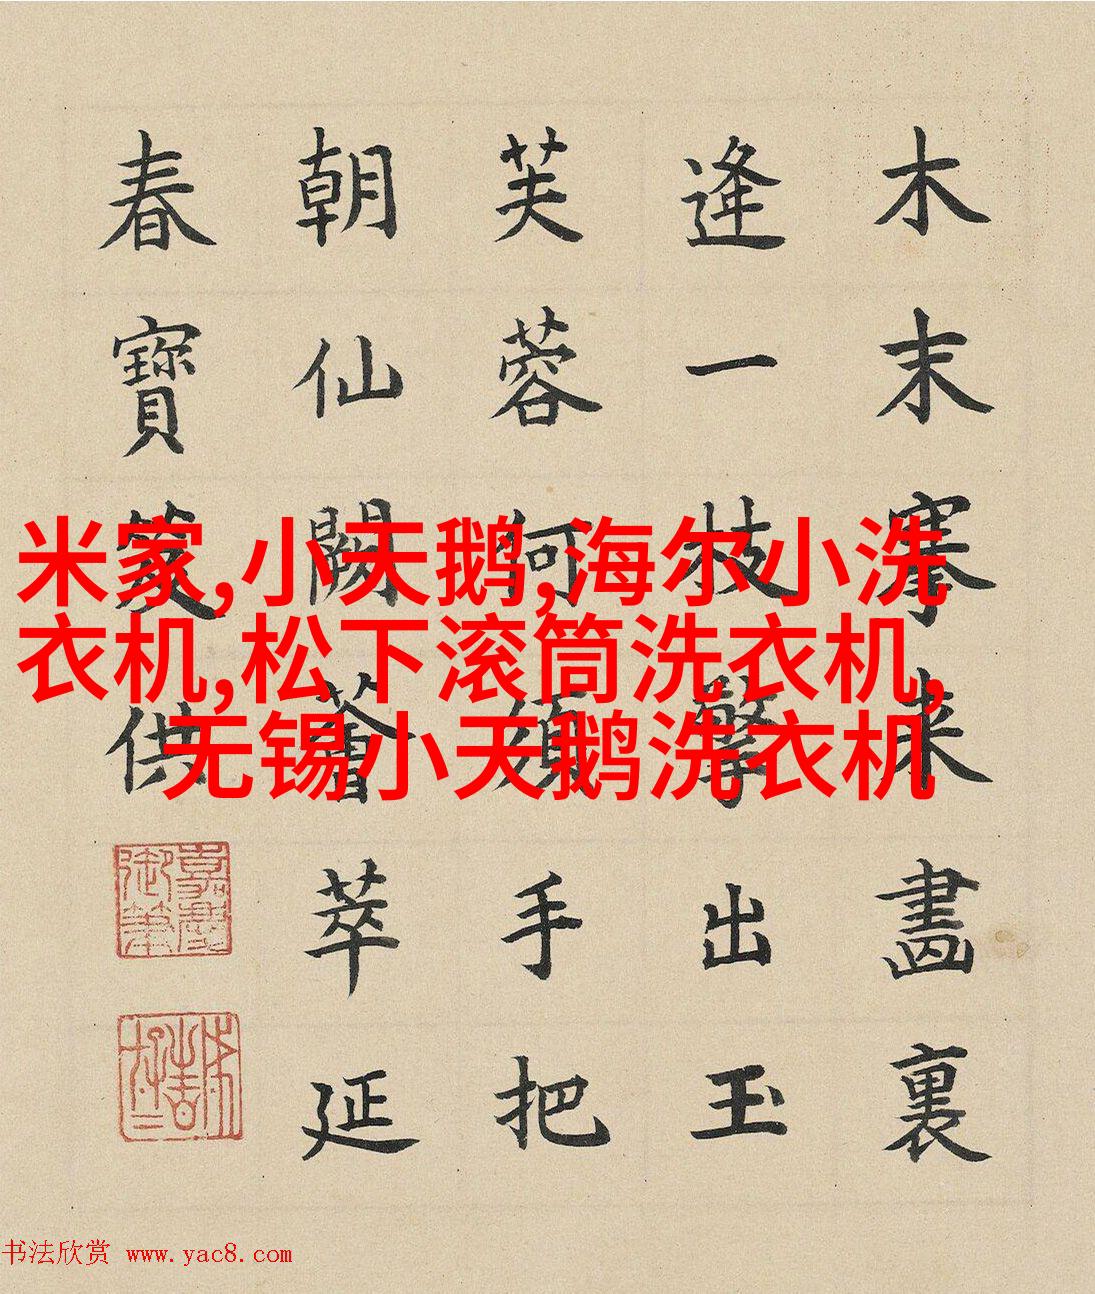 木末搴來畫裏
逢一枝擎出玉
芙蓉何須手把
朝仙闕薈萃延
春寶篆供
嘉慶御筆
米家,小天鹅,海尔小洗
衣机,松下滚筒洗衣机,
无锡小天鹅洗衣机
书法欣赏 www.yac8.com